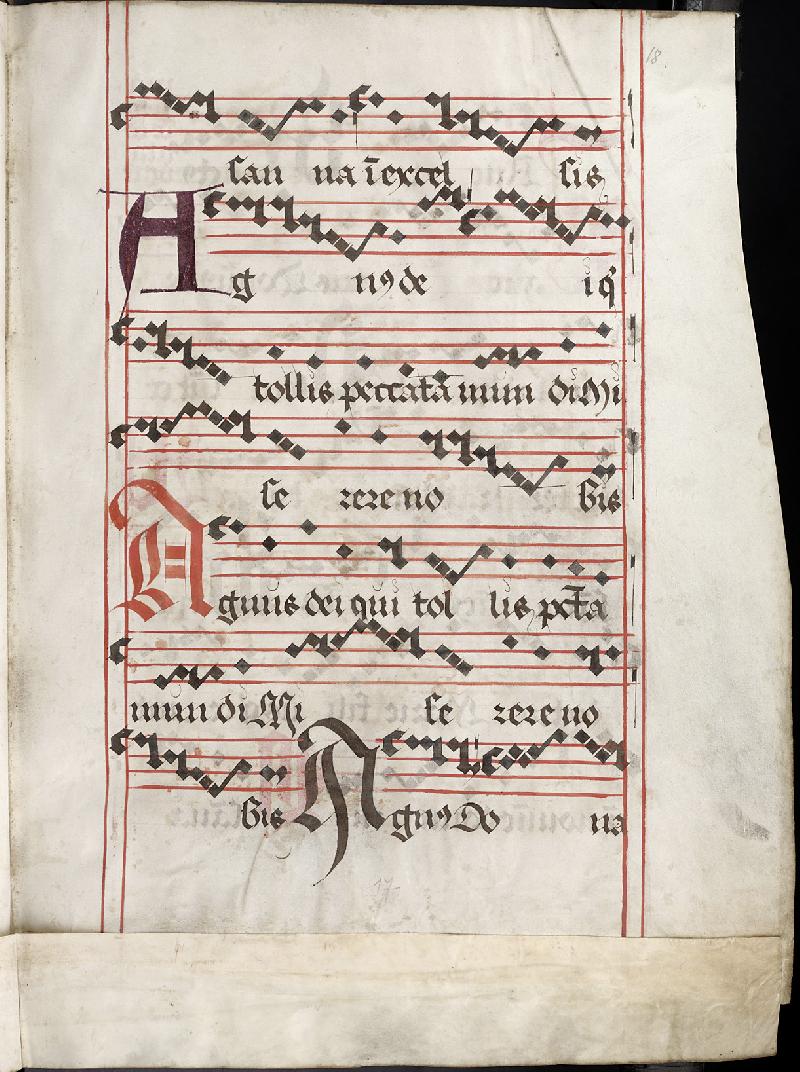 18.
san na ī excel sis
Ag nꝰ de i qͥ
tollis peccata mun di Mi
se rere no bis
Agnus dei qui tol lis pctā
mun di Mi se rere no
bis Agnꝰ Do na
17